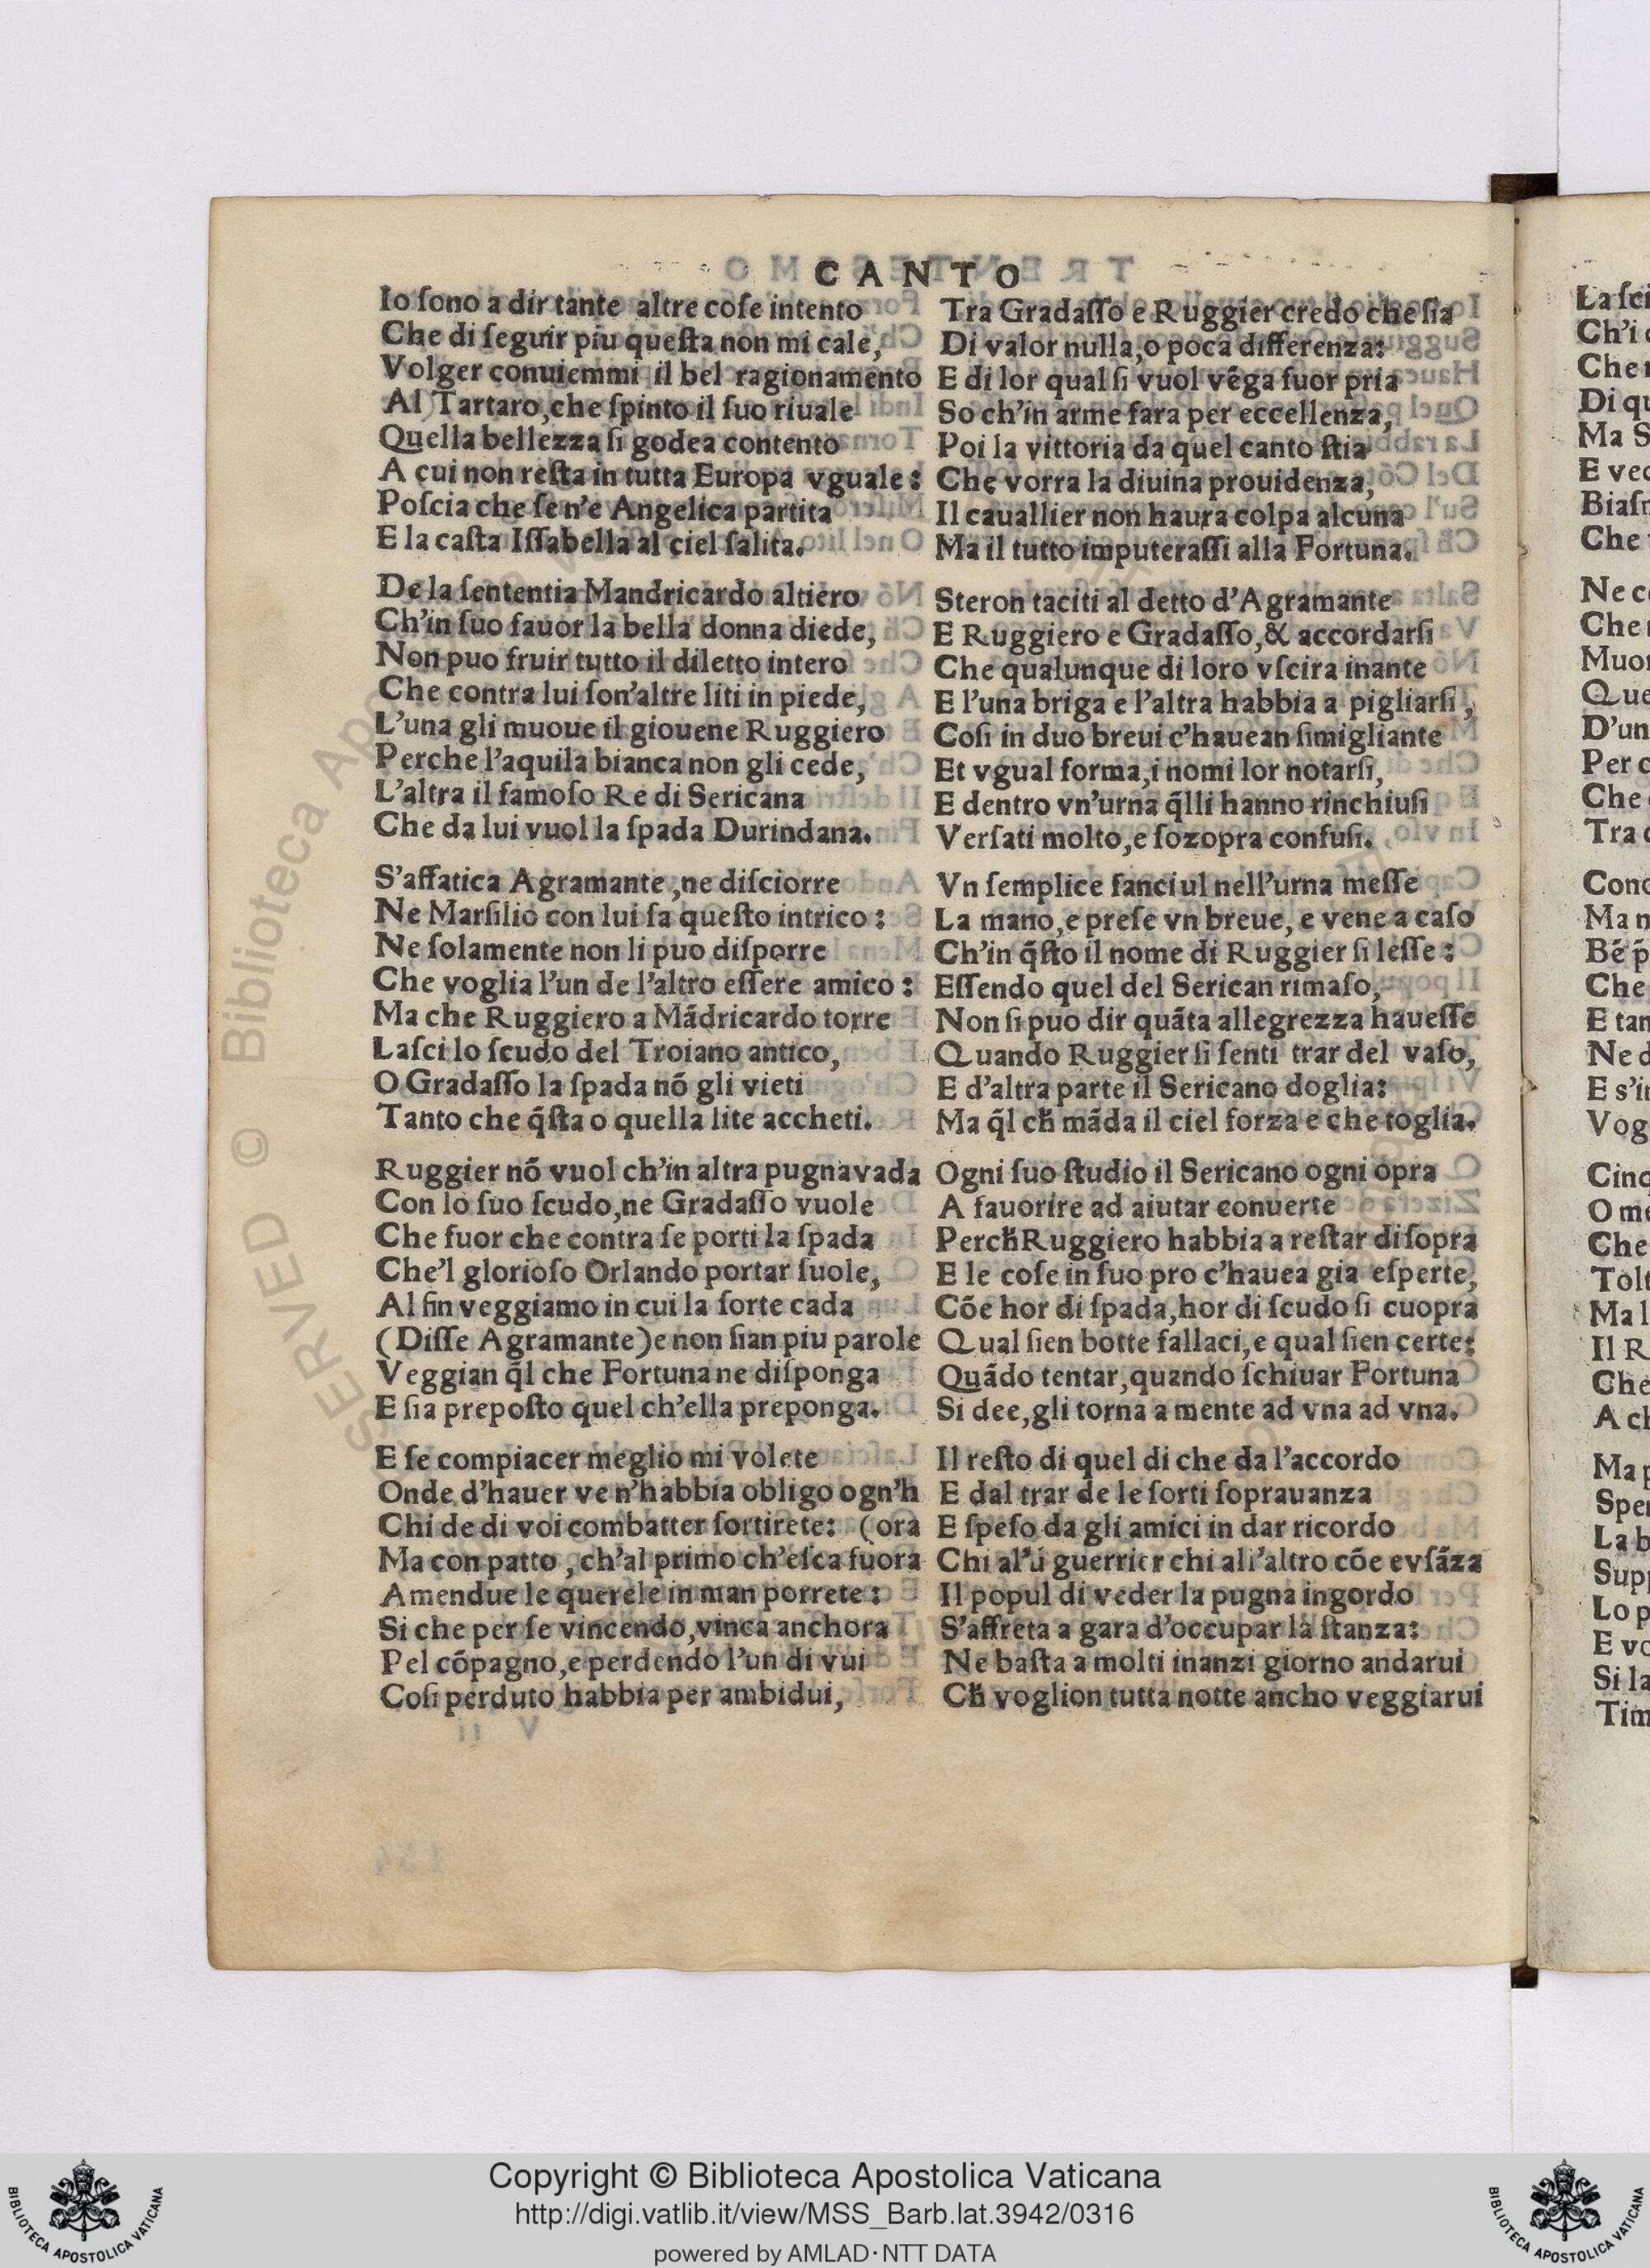 CANTO
Io ſono a dir tante altre coſe intento
Che di ſeguir piu queſta non mi cale,
Volger conuiemmi il bel ragionamento
Al Tartaro,che ſpinto il ſuo riuale
Quella bellezza ſi godea contento
A cui non reſta in tutta Europa vguale:
Poſcia che ſe n'e Angelica partita
E la caſta Iſſabella al ciel ſalita.
De la ſententia Mandricardo altiero
Ch'in ſuo fauor la bella donna diede,
Non puo fruir tutto il diletto intero
Che contra lui ſon'altre liti in piede,
L'una gli muoue il giouene Ruggiero
Perche l'aquila bianca non gli cede,
L'altra il famoſo Re di Sericana
Che da lui vuol la ſpada Durindana.
S'affatica Agramante ,ne diſciorre
Ne Marſilio con lui ſa queſto intrico:
Ne ſolamente non li puo diſporre
Che voglia l'un de l'altro eſſere amico:
Ma che Ruggiero a Mãdricardo torre
Laſci lo ſcudo del Troiano antico,
O Gradaſſo la ſpada nõ gli vieti
Tanto che q̃ſta o quella lite accheti.
Ruggier nõ vuol ch'in altra pugna vada
Con lo ſuo ſcudo,ne Gradaſſo vuole
Che fuor che contra ſe porti la ſpada
Che'l glorioſo Orlando portar ſuole,
Al fin veggiamo in cui la ſorte cada
(Diſſe Agramante)e non ſian piu parole
Veggian q̃l che Fortuna ne diſponga
E ſia prepoſto quel ch'ella preponga.
E ſe compiacer meglio mi volete
Onde d'hauer ve n'habbia obligo ogn'h
Chi de di voi combatter ſortirete: (ora
Ma con patto , ch'al primo ch'eſca fuora
Amendue le querele in man porrete:
Si che per ſe vincendo,vinca anchora
Pel cõpagno,e perdendo l'un di vui
Coſi perduto habbia per ambidui,
Tra Gradaſſo e Ruggier credo che ſia
Di valor nulla,o poca differenza:
E di lor qual ſi vuol vẽga fuor pria
So ch'in arme fara per eccellenza,
Poi la vittoria da quel canto ſtia
Che vorra la diuina prouidenza,
Il cauallier non haura colpa alcuna
Ma il tutto imputeraſſi alla Fortuna.
Steron taciti al detto d'Agramante
E Ruggiero e Gradaſſo,& accordarſi
Che qualunque di loro vſcira inante
E l'una briga e l'altra habbia a pigliarſi,
Coſi in duo breui c'hauean ſimigliante
Et vgual forma,i nomi lor notarſi,
E dentro vn'urna q̃lli hanno rinchiuſi
Verſati molto,e ſozopra confuſi.
Vn ſemplice fanciul nell'urna meſſe
La mano,e preſe vn breue, e vene a caſo
Ch'in q̃ſto il nome di Ruggier ſi leſſe:
Eſſendo quel del Serican rimaſo,
Non ſi puo dir quãta allegrezza haueſſe
Quando Ruggier ſi ſenti trar del vaſo,
E d'altra parte il Sericano doglia:
Ma q̃l ch̃ mãda il ciel forza e che toglia.
Ogni ſuo ſtudio il Sericano ogni opra
A fauorire ad aiutar conuerte
Perch̃ Ruggiero habbia a reſtar diſopra
E le coſe in ſuo pro c'hauea gia eſperte,
Cõe hor di ſpada,hor di ſcudo ſi cuopra
Qual ſien botte fallaci,e qual ſien certe:
Quãdo tentar,quando ſchiuar Fortuna
Si dee,gli torna a mente ad vna ad vna.
Il reſto di quel di che da l'accordo
E dal trar de le ſorti ſoprauanza
E ſpeſo da gli amici in dar ricordo
Chi al'ũ guerrier chi all'altro cõe e vſãza
Il popul di veder la pugna ingordo
S'affreta a gara d'occupar la ſtanza:
Ne baſta a molti inanzi giorno andarui
Ch̃ voglion tutta notte ancho veggiarui
Copyright © Biblioteca Apostolica Vaticana
http://digi.vatlib.it/view/MSS_Barb.lat.3942/0316
powered by AMLAD·NTT DATA
BIBLIOTECA APOSTOLICA VATICANA
BIBLIOTECA APOSTOLICA VATICANA